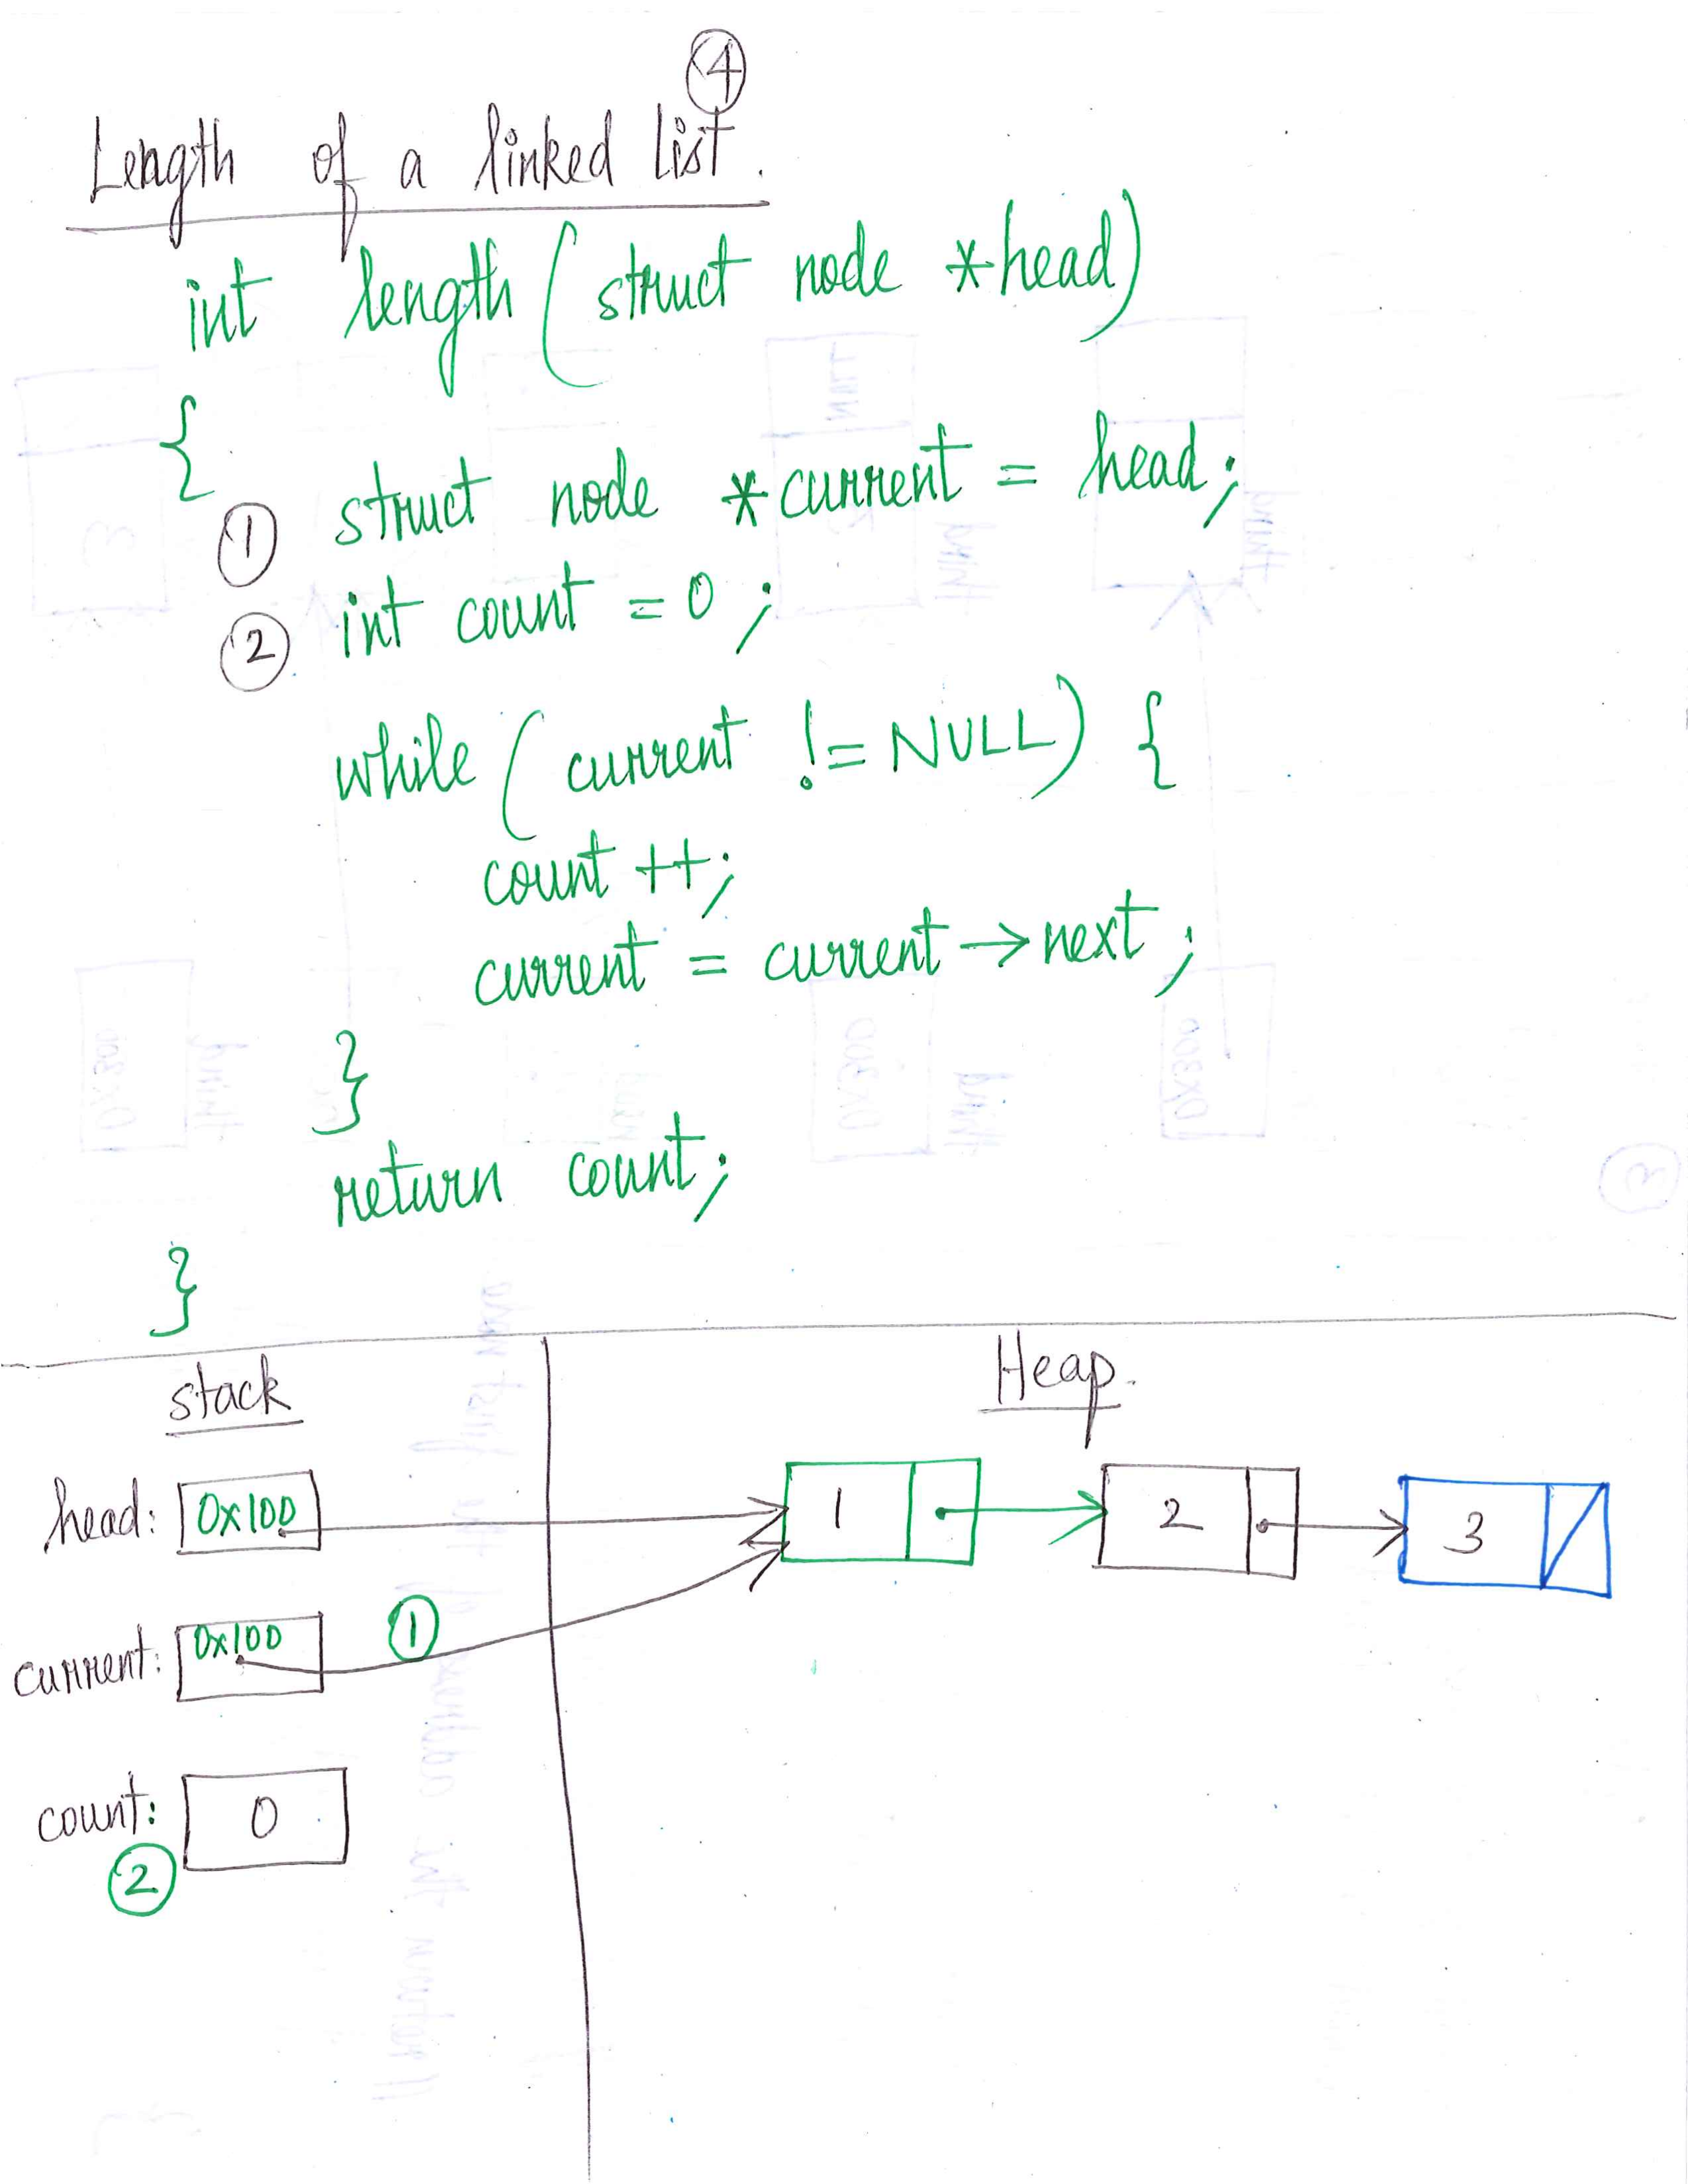 4
Length of a linked list.
int length ( struct node *head)
{
1 struct node *current = head;
2 int count = 0 ;
while ( current != NULL) {
count ++;
current = current → next ;
}
return count;
}
stack
Heap.
head: 0x100
1
2
3
current: 0x100
1
count: 0
2